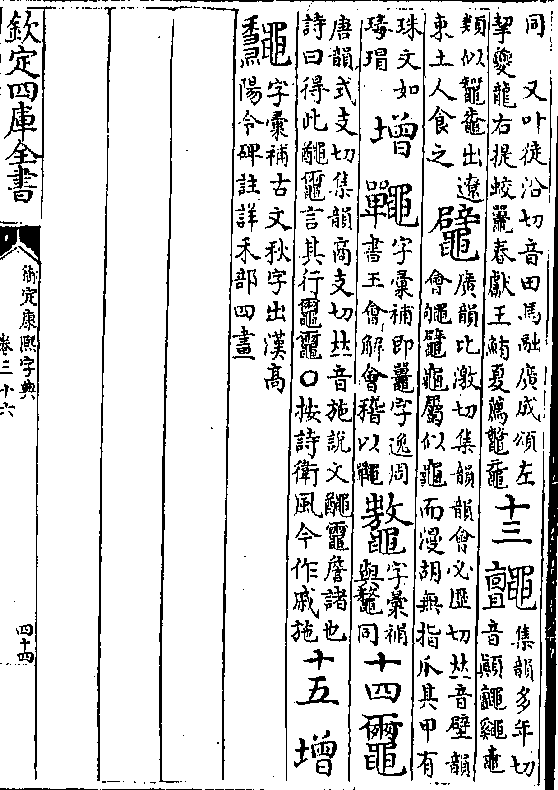 同　又叶徒沿切音田馬融廣成頌左
挈夔龍右提蛟鼉春獻王鮪夏薦鼈黿
十三
集韻多年切
音顚
類似鼊鼇出遼
東土人食之
鼊
廣韻比激切集韻韻會必歴切𠀤音壁韻
會鼊龜屬似龜而漫胡無指爪其甲有
珠文如
瑇瑁
增
字彙補即鼉字逸周
書王會解會稽以
字彙補
與鼇同
十四
唐韻式支切集韻商支切𠀤音施說文詹諸也
詩曰得此言其行○按詩衛風今作戚施
十五
增
字彙補古文秋字出漢高
陽令碑註詳禾部四畫
欽定四庫全書
御定康熙字典
卷三十六
四十四